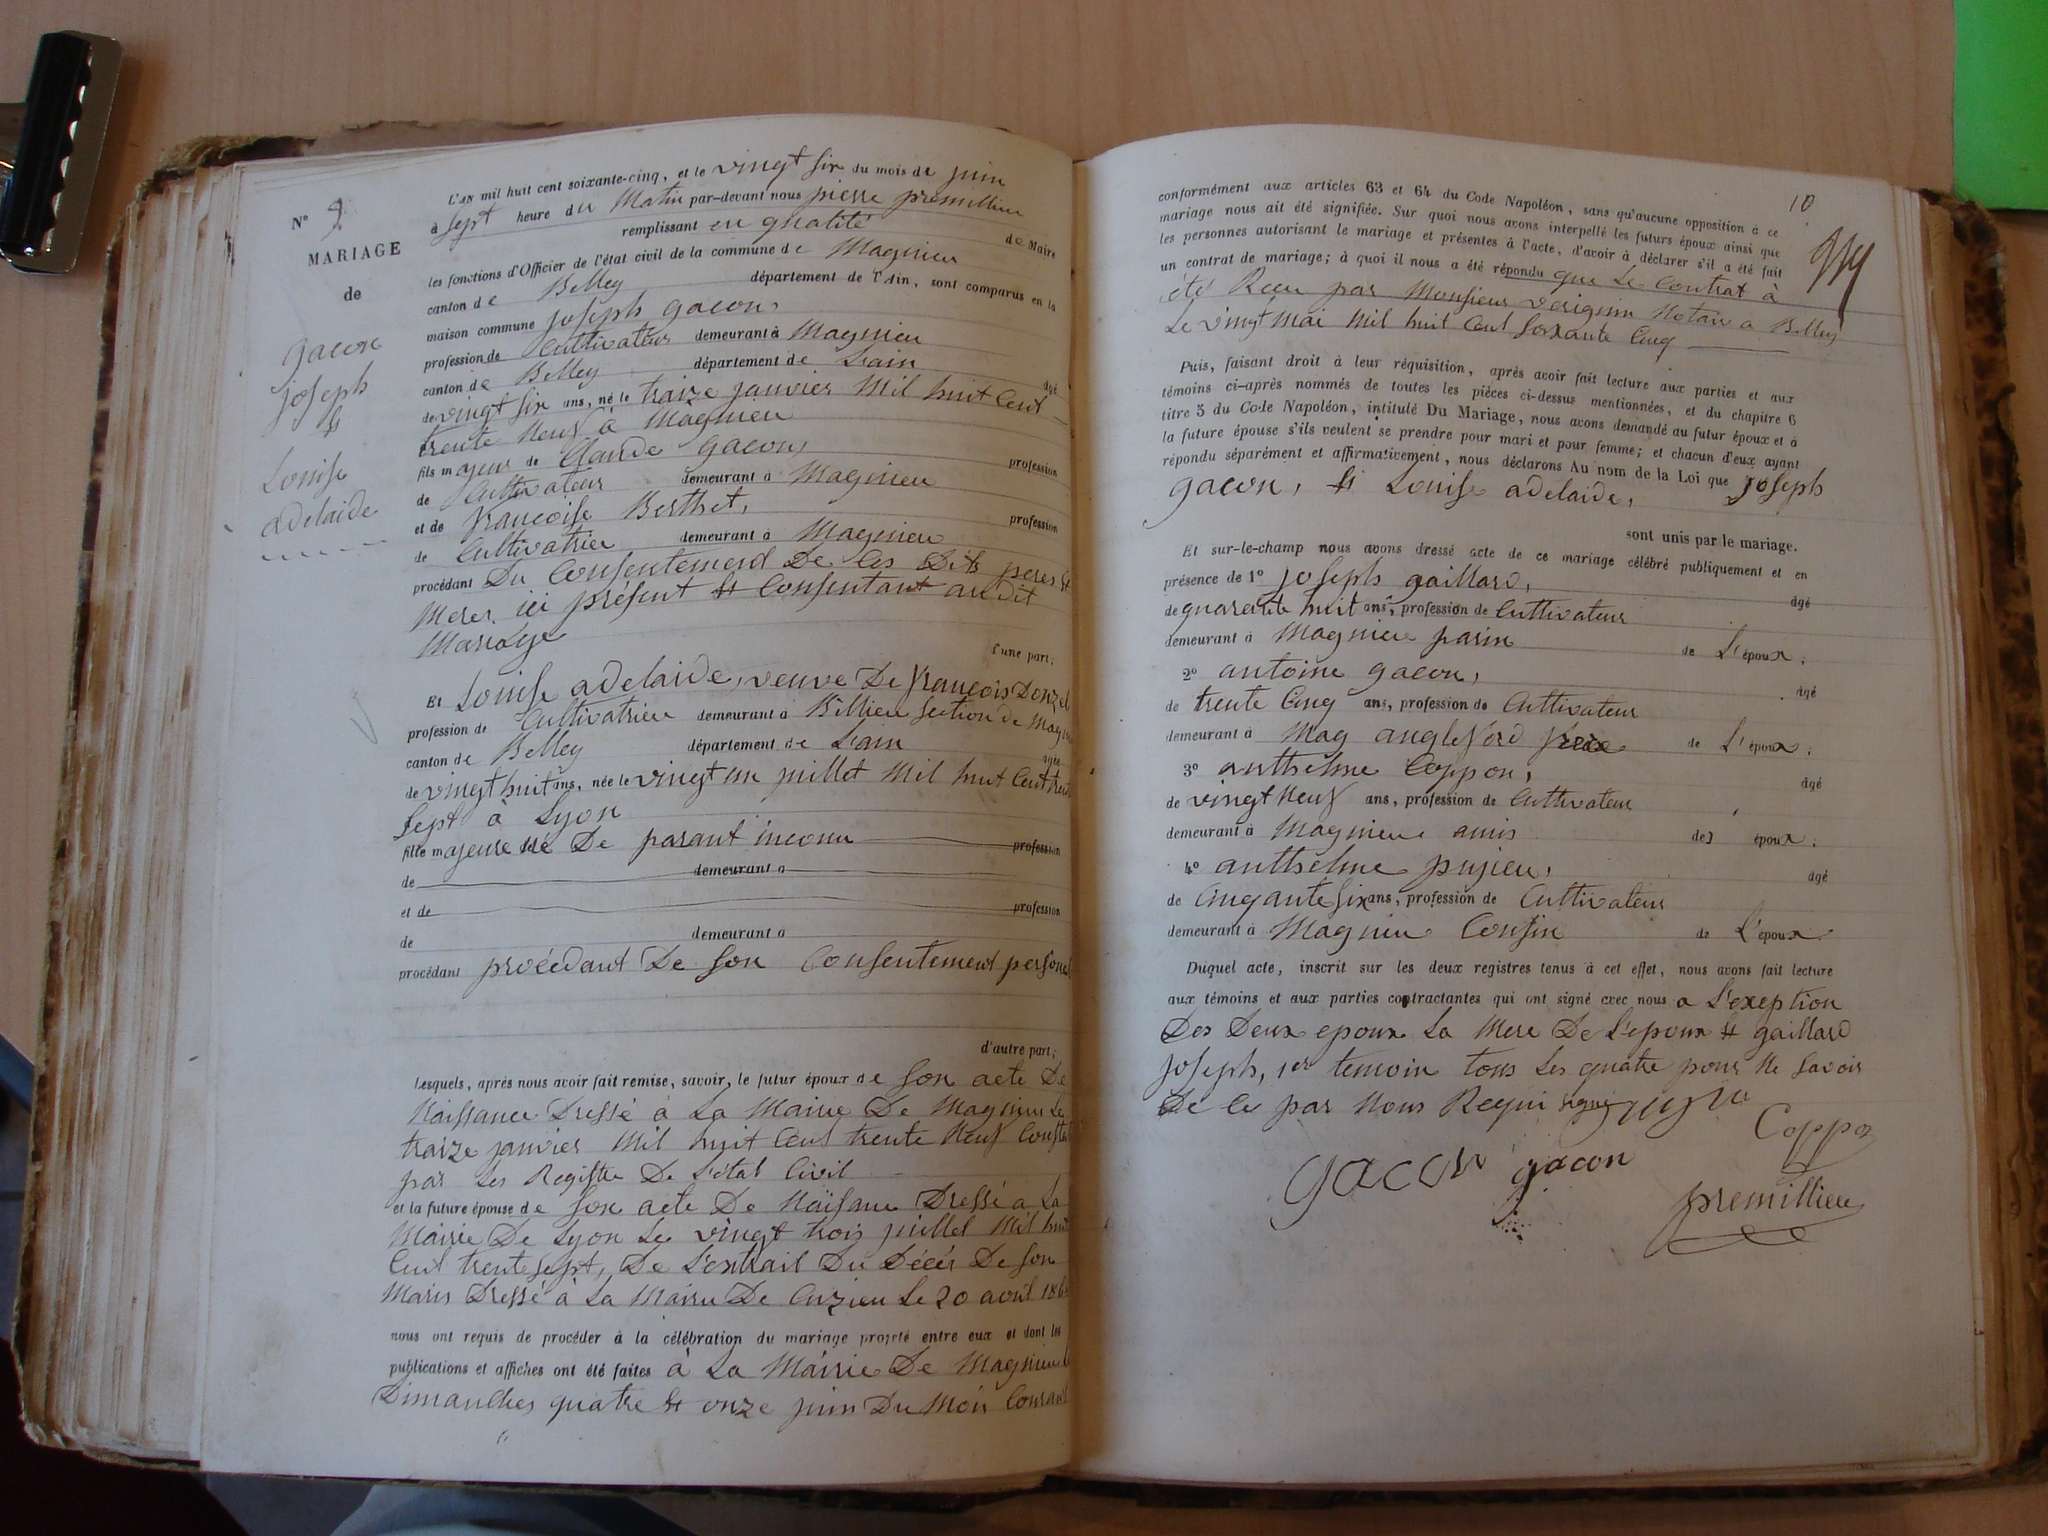 N° 9
MARIAGE
de
gacon
joseph
et
Louise
adelaide
L'AN mil huit cent soixante-cinq, et le vingt six du mois de juin
à sept heure du Matin par-devant nous pierre premillieu
remplissant en qualité de Maire
les fonctions d'Officier de l'état civil de la commune de Magnieu
canton de Belley département de l'Ain, sont comparus en la
maison commune joseph gacon,
profession de Cultivateur demeurant à Magnieu
canton de Belley département de L'ain âgé
de vingt six ans, né le traize janvier Mil huit Cent
trente Neuf à Magnieu
fils majeur de Claude gacon, profession
de Cultivateur demeurant à Magnieu
et de francoise Berthet, profession
de Cultivatrice demeurant à Magnieu
procédant Du Consentement De Ces Dits peres et
Meres ici présent et Consentant au dit
Mariage
d'une part;
Et Louise adelaide, veuve De françois Donzel
profession de Cultivatrice demeurant à Billieu section de Magnieu
canton de Belley département de L'ain agée
de vingt huit ans, née le vingt un juillet Mil huit Cent trente
sept à Lyon
fille majeure né De parant inconu profession
de demeurant à
et de profession
de demeurant à
procédant procédant De son Consentement personel
d'autre part;
Lesquels, après nous avoir fait remise, savoir, le futur époux de son acte De
Naissance Dressé à La Mairie De Magnieu Le
traize janvier Mil huit Cent trente Neuf Constaté
par Les Registre De L'état Civil
et la future épouse de son acte De Naïsance Dressé a La
Mairie De Lyon Le vingt trois juillet Mil huit
Cent trente sept, De L'extrait Du Décés De son
Maris Dressé à La Mairie De Cuzieu Le 20 avril
nous ont requis de procéder à la célébration du mariage projeté entre eux et dont les
publications et affiches ont été faites à La Mairie De Magnieu
Dimanches quatre et onze juin Du Mois Courant
10
conformément aux articles 63 et 64 du Code Napoléon, sans qu'aucune opposition à ce
mariage nous ait été signifiée. Sur quoi nous avons interpellé les futurs époux ainsi que
les personnes autorisant le mariage et présentes à l'acte, d'avoir à déclarer s'il a été fait
un contrat de mariage; à quoi il nous a été répondu que Le Contrat à
été Recu par Monsieur Notair a Belley
Le vingt Mai Mil huit Cent soixante Cinq
Puis, faisant droit à leur réquisition, après avoir fait lecture aux parties et aux
témoins ci-après nommés de toutes les pièces ci-dessus mentionnées, et du chapitre 6
titre 5 du Code Napoléon, intitulé Du Mariage, nous avons demandé au futur époux et à
la future épouse s'ils veulent se prendre pour mari et pour femme; et chacun d'eux ayant
répondu séparément et affirmativement, nous déclarons Au nom de la Loi que joseph
gacon, et Louise adelaide,
sont unis par le mariage.
Et sur-le-champ nous avons dressé acte de ce mariage célébré publiquement et en
présence de 1° joseph gaillard, âgé
de quarente huit ans, profession de Cultivateur
demeurant à Magnieu parin de L'époux;
2° antoine gacon, âgé
de trente Cinq ans, profession de Cultivateur
demeurant à Mag angleford frere de L'époux;
3° anthelme Coppon, âgé
de vingt Neuf ans, profession de Cultivateur
demeurant à Magnieu amis des époux;
4° anthelme pujieu, âgé
de Cinqante six ans, profession de Cultivateur
demeurant à Magnieu Cousin de L'époux
Duquel acte, inscrit sur les deux registres tenus à cet effet, nous avons fait lecture
aux témoins et aux parties contractantes qui ont signé avec nous a L'exeption
Des Deux epoux La Mere De L'epoux et gaillard
joseph, 1er temoin tous Les quatre pour Ne savoir
De Ce par Nous Requi signé
Coppon
gacon gacon
premillieu